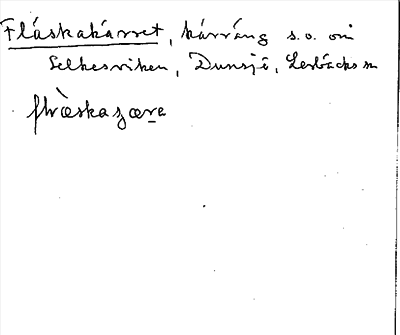 Fläskakärret, kärräng s.o. om
Selkesviken, Dunsjö, Lerbäcks sn
flæskaɟæra